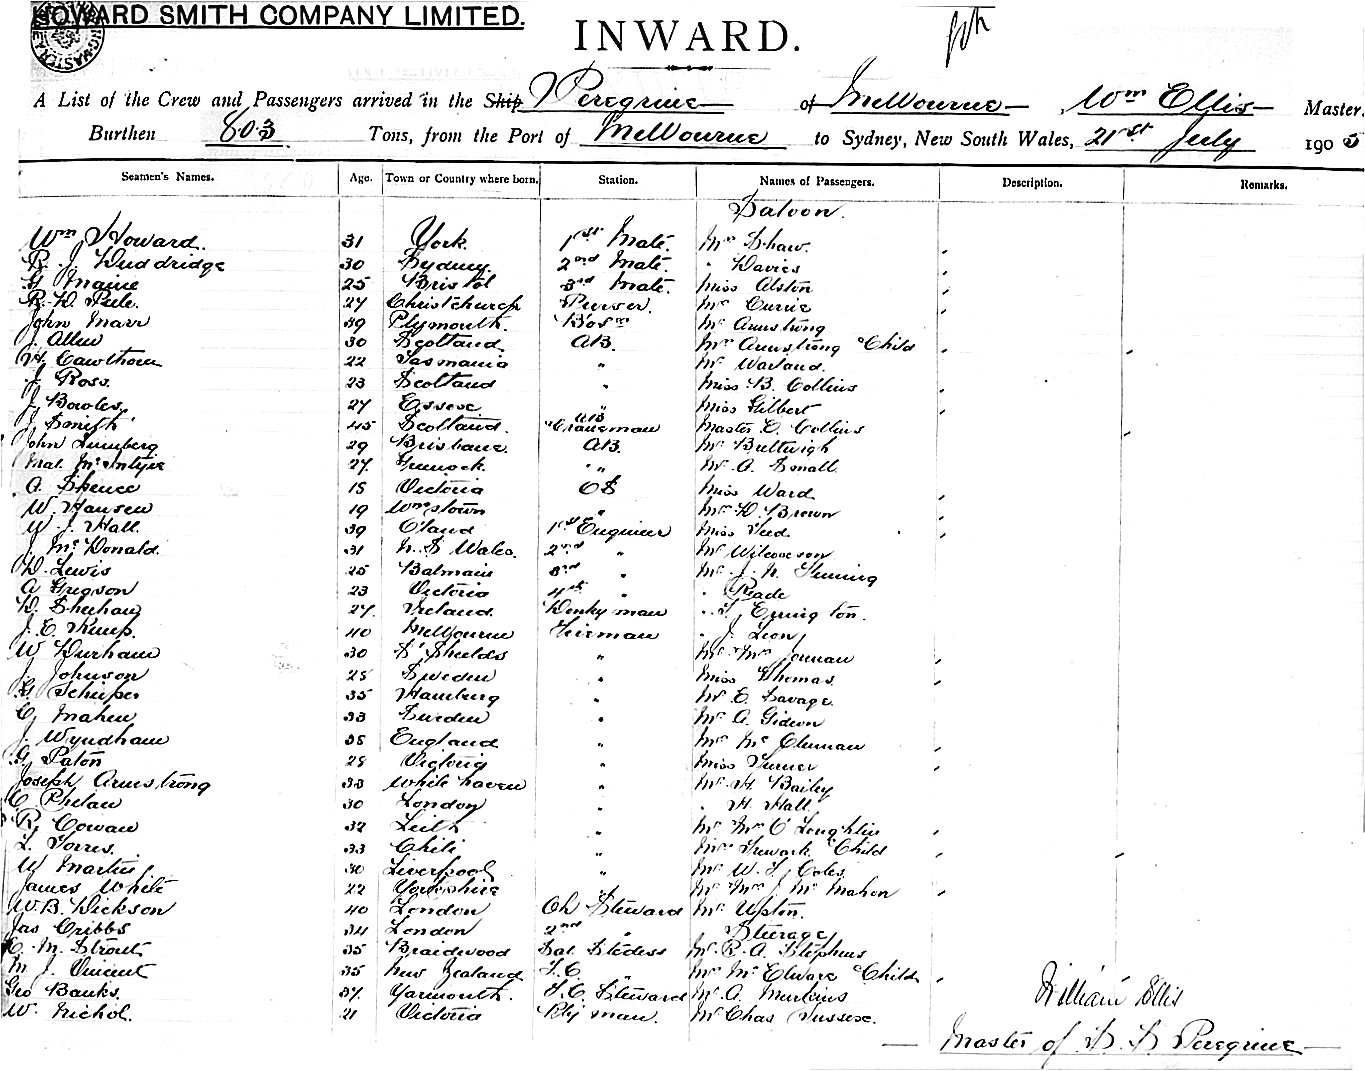 HOWARD SMITH COMPANY LIMITED.
INWARD.
A List of the Crew and Passengers arrived in the Ship Peregrine of Melbourne, Wm Ellis Master.
Burthen 803 Tons, from the Port of Melbourne to Sydney, New South Wales, 21st July 1905
Seamen's Names. Age. Town or Country where born. Station. Names of Passengers. Description. Remarks.
Saloon.
Wm Howard. 31 York. 1st Mate. Mr Shaw.
R. J. Duddridge 30 Sydney. 2nd Mate. " Davies
G Maine 25 Bristol 3rd Mate. Miss Alston
R. W. Pule. 27 Christchurch Purser. Mr Currie
John Marr 39 Plymouth. Bosn Mr Armstrong
J. Allen 30 Scotland AB. Mrs Armstrong Child
H. Cawthorn 22 Tasmania " Mr Warland.
J. Ross. 23 Scotland " Miss B. Collins
J. Bowles 27 Essex " Miss Gilbert
J. Smith 45 Scotland. AB Craneman Master E. Collins
John Lumberg 29 Brisbane AB. Mr
Mal. McIntyre 27. Greenock. " " Mr A. Small
A. Spence 18 Victoria OS Miss Ward
W. Hansen 19 Wmstown " Mrs D. Brown
W. J. Hall. 39 1st Engineer Miss
J. McDonald. 31 N. S Wales. 2nd " Mr
D. Lewis 25 Balmain 3rd " Mr J. N. Fleming
A Gregson 23 Victoria 4th " " Reade
D. Sheehan 27. Ireland. Donkyman " T. Errington.
J. E. Kemp. 40 Melbourne Fireman " J. Leon
W Durham 30 S' Shields " Mr Mrs
J Johnson 28 Sweden " Miss Thomas.
G. 35 Hamburg " Mr E. Savage
C, 33 Sweden " Mr A. Gideon
J. Wyndham 38 England " Mrs
G. Paton 28 Victoria " Miss Turner
Joseph Armstrong 33 White haven " Mr H. Bailey
C Phelan 30 London " " H. Hall
R. Cowan 32 Leith " Mr McLoughlin
L. Torres. 33 Chili " Mrs Child
W Martin. 30 Liverpool " Mr W. T. Coles.
James White 22 Yorkshire Mr Mrs J. McMahon
W. B. Dickson 40 London Ch Steward Mr Upton.
Jas Cribbs 34 London 2nd " Steerage
E. M. Strout 35 Braidwood Sal Stedess Mr R. A. Stephens
M J. Vincent 35 New Zealand F. C " Mrs Child
Geo Banks. 37 Yarmouth. F. C. Steward Mr A.
W. Nichol. 21 Victoria man. Mr Chas Tussese.
William Ellis
Master of S. S Peregrine